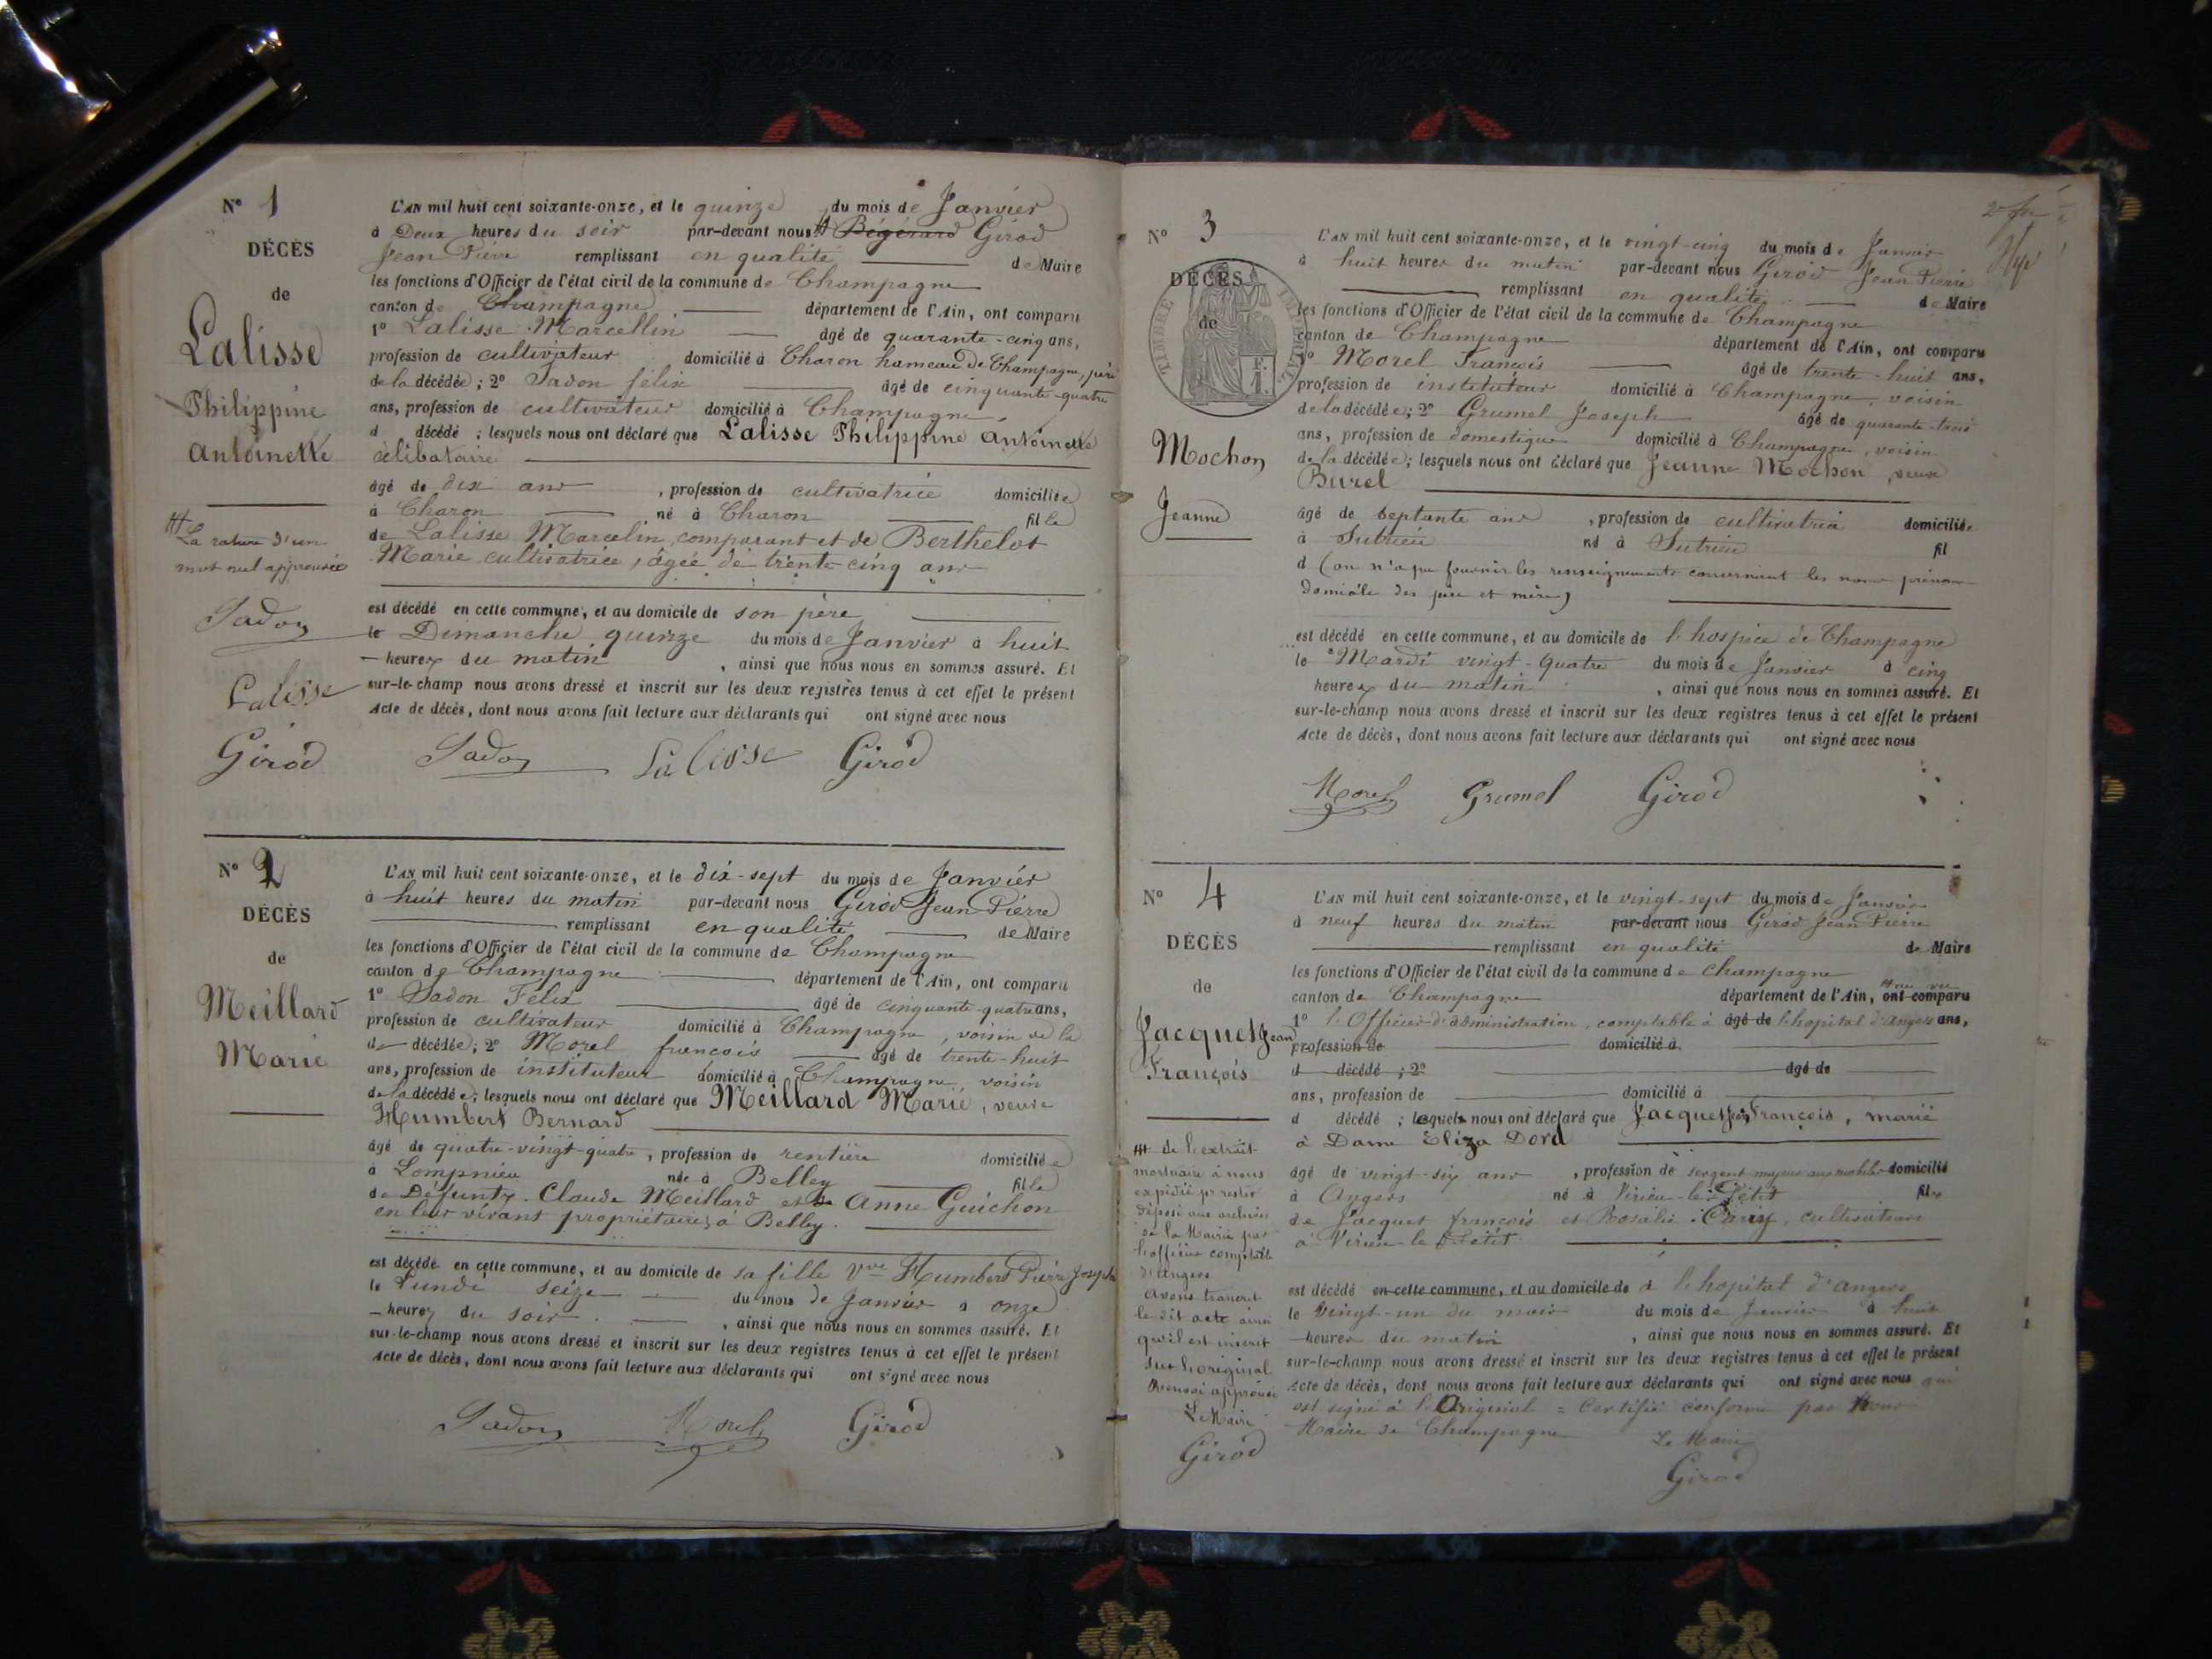 N° 1
DÉCÈS
de
Lalisse
Philippine
Antoinette
# La rature d'un
mot nul approuvée
Sadon
Lalisse
Girod
L'AN mil huit cent soixante-onze, et le quinze du mois de Janvier
à Deux heures du soir par-devant nous # Bégérard Girod
Jean Pierre remplissant en qualité de Maire
les fonctions d'Officier de l'état civil de la commune de Champagne
canton de Champagne département de l'Ain, ont comparu
1° Lalisse Marcellin âgé de quarante-cinq ans,
profession de cultivateur domicilié à Charon hameau de Champagne, père
de la décédée ; 2° Sadon félix âgé de cinquante-quatre
ans, profession de cultivateur domicilié à Champagne,
d décédé ; lesquels nous ont déclaré que Lalisse Philippine Antoinette
célibataire
âgé de dix ans , profession de cultivatrice domiciliée
à Charon né à Charon fille
de Lalisse Marcelin, comparant et de Berthelot
Marie cultivatrice, âgée de trente cinq ans
est décédé en cette commune, et au domicile de son père
le Dimanche quinze du mois de Janvier à huit
heures du matin , ainsi que nous nous en sommes assuré. Et
sur-le-champ nous avons dressé et inscrit sur les deux registres tenus à cet effet le présent
Acte de décès, dont nous avons fait lecture aux déclarants qui ont signé avec nous
Sadon Lalisse Girod
N° 2
DÉCÈS
de
Meillard
Marie
L'AN mil huit cent soixante-onze, et le dix-sept du mois de Janvier
à huit heures du matin par-devant nous Girod Jean Pierre
remplissant en qualité de Maire
les fonctions d'Officier de l'état civil de la commune de Champagne
canton de Champagne département de l'Ain, ont comparu
1° Sadon Félix âgé de cinquante-quatre ans,
profession de cultivateur domicilié à Champagne, voisin de la
d décédée ; 2° Morel françois âgé de trente-huit
ans, profession de instituteur domicilié à Champagne, voisin
de la décédée ; lesquels nous ont déclaré que Meillard Marie, veuve
Humbert Bernard
âgé de quatre-vingt-quatre, profession de rentière domiciliée
à Lompnieu née à Belley fille
de Défunts Claude Meillard et de Anne Guichon
en leur vivant propriétaires à Belley.
est décédé en cette commune, et au domicile de sa fille Vve Humbert Pierre Joseph
le Lundi seize du mois de Janvier à onze
heures du soir , ainsi que nous nous en sommes assuré. Et
sur-le-champ nous avons dressé et inscrit sur les deux registres tenus à cet effet le présent
Acte de décès, dont nous avons fait lecture aux déclarants qui ont signé avec nous
Sadon Morel Girod
N° 3
DÉCÈS
de
TIMBRE IMPÉRIAL
1 F.
Mochon
Jeanne
L'AN mil huit cent soixante-onze, et le vingt-cinq du mois de Janvier
à huit heures du matin par-devant nous Girod Jean Pierre
remplissant en qualité de Maire
les fonctions d'Officier de l'état civil de la commune de Champagne
canton de Champagne département de l'Ain, ont comparu
1° Morel François âgé de trente-huit ans,
profession de instituteur domicilié à Champagne, voisin
de la décédée ; 2° Grumel Joseph âgé de quarante-trois
ans, profession de domestique domicilié à Champagne, voisin
de la décédée ; lesquels nous ont déclaré que Jeanne Mochon, veuve
Burel
âgé de septante ans , profession de cultivatrice domiciliée
à Sutrieu né à Sutrieu fil
d (on n'a pu fournir les renseignements concernant les noms prénoms
domicile des père et mère)
est décédé en cette commune, et au domicile de l'hospice de Champagne
le Mardi vingt-quatre du mois de Janvier à cinq
heures du matin , ainsi que nous nous en sommes assuré. Et
sur-le-champ nous avons dressé et inscrit sur les deux registres tenus à cet effet le présent
Acte de décès, dont nous avons fait lecture aux déclarants qui ont signé avec nous
Morel Grumel Girod
N° 4
DÉCÈS
de
Jacquet Jean
François
# de l'extrait
mortuaire à nous
expédié pr rester
déposé aux archives
de la Mairie par
l'officier comptable
d'Angers
avons transcrit
le dit acte ainsi
qu'il est inscrit
sur l'original
Renvoi approuvé
Le Maire
Girod
L'AN mil huit cent soixante-onze, et le vingt-sept du mois de Janvier
à neuf heures du matin par-devant nous Girod Jean Pierre
remplissant en qualité de Maire
les fonctions d'Officier de l'état civil de la commune de champagne
canton de Champagne département de l'Ain, ont comparu # au vu
1° l'Officier d'administration, comptable à âgé de l'hopital d'angers ans,
profession de domicilié à
d décédé ; 2° âgé de
ans, profession de domicilié à
d décédé ; lequels nous ont déclaré que Jacquet Jean François, marié
à Dame Eliza Dord
âgé de vingt-six ans , profession de sergent major aux mobiles domicilié
à Angers né à Virieu-le-Petit fils
de Jacquet françois et Rosalie Cârrey, cultivateurs
à Virieu-le-Petit
est décédé en cette commune, et au domicile de à l'hopital d'angers
le vingt-un du mois du mois de Janvier à huit
heures du matin , ainsi que nous nous en sommes assuré. Et
sur-le-champ nous avons dressé et inscrit sur les deux registres tenus à cet effet le présent
Acte de décès, dont nous avons fait lecture aux déclarants qui ont signé avec nous qui
est signé à l'Original = Certifié conforme par Nous
Maire de Champagne Le Maire
Girod